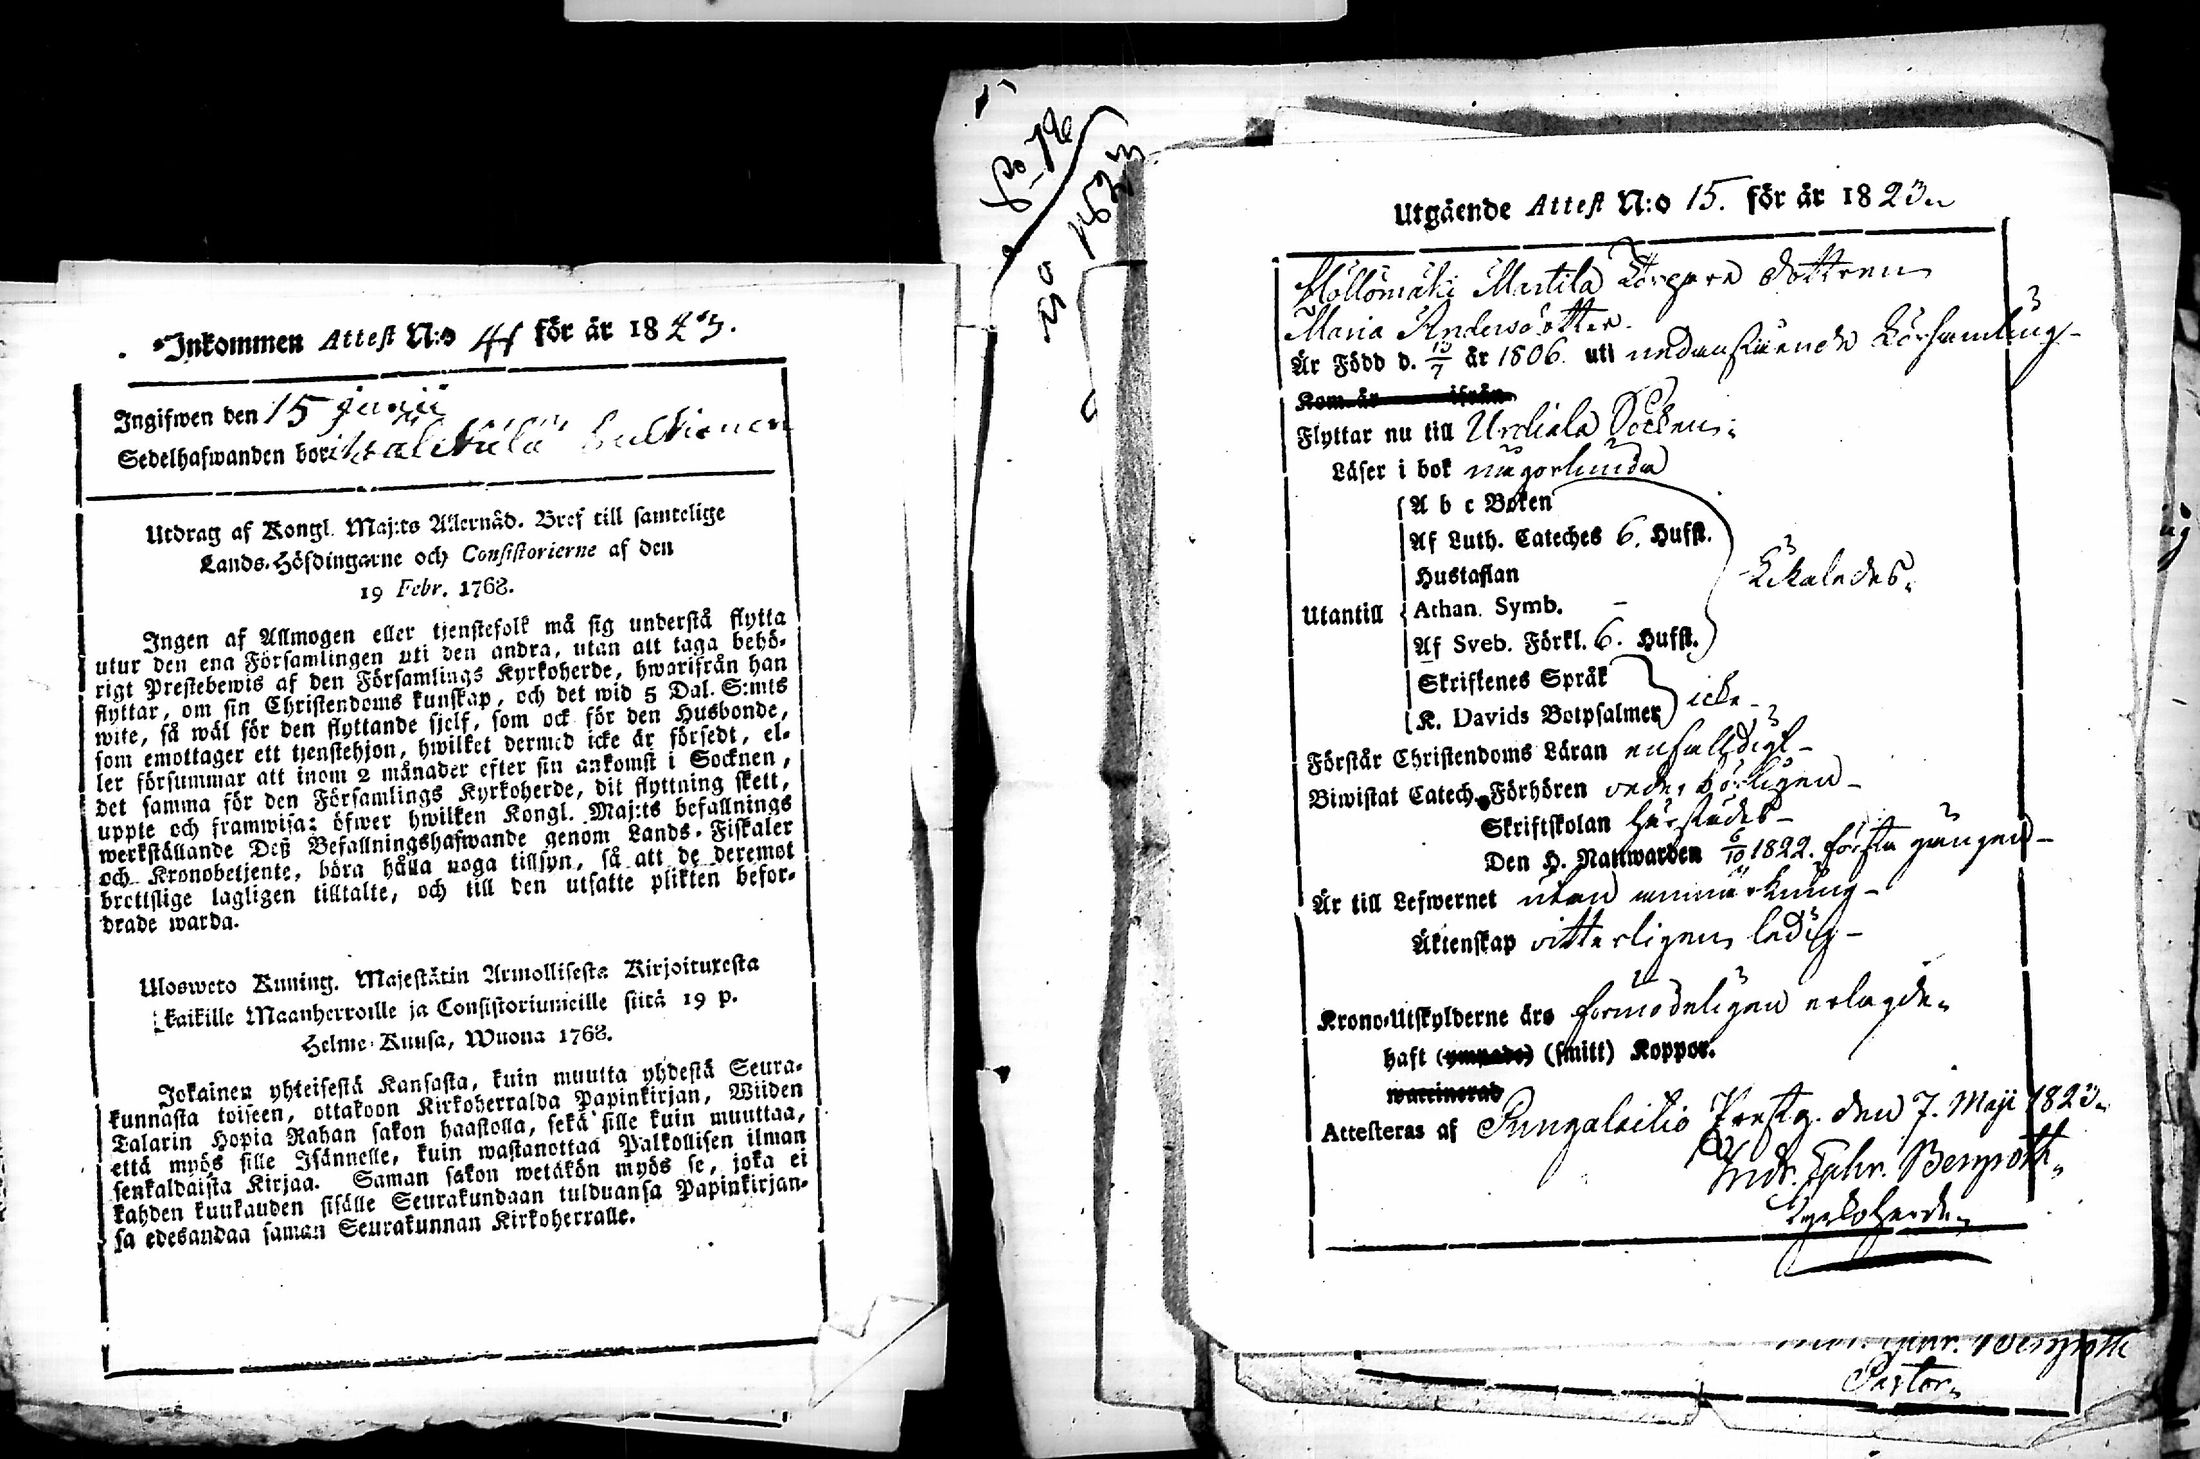 Inkommen Attest N:o 44 för år 1823.
Ingifwen den 15 Junii
Sedelhafwanden bor i
Utdrag af Kongl. Maj:ts Allernåd. Bref till samtelige
Lands-Höfdingarne och Consistorierne af den
19 Febr. 1768.
Ingen af Allmogen eller tjenstefolk må sig understå flytta
utur den ena Församlingen uti den andra, utan att taga behö-
rigt Prestebewis af den Församlings Kyrkoherde, hwarifrån han
flyttar, om sin Christendoms kunskap, och det wid 5 Dal. S:mts
wite, så wäl för den flyttande sjelf, som ock för den Husbonde,
som emottager ett tjenstehjon, hwilket dermed icke är försedt, el-
ler försummar att inom 2 månader efter sin ankomst i Socknen,
det samma för den Församlings Kyrkoherde, dit flyttning skett,
uppte och framwisa: öfwer hwilken Kongl. Maj:ts befallnings
werkställande Deß Befallningshafwande genom Lands-Fiskaler
och Kronobetjente, böra hålla noga tillsyn, så att de deremot
brottslige lagligen tilltalte, och till den utsatte plikten befor-
drade warda.
Ulosweto Kuning. Majestätin Armollisesta Kirjoituxesta
kaikille Maanherroille ja Consistoriumeille siitä 19 p.
Helme-Kuusa, Wuona 1768.
Jokainen yhteisestä Kansasta, kuin muutta yhdestä Seura-
kunnasta toiseen, ottakoon Kirkoherralda Papinkirjan, Wiiden
Talarin Hopia Rahan sakon haastolla, sekä sille kuin muuttaa,
että myös sille Isännelle, kuin wastanottaa Palkollisen ilman
senkaldaista Kirjaa. Saman sakon wetäkön myös se, joka ei
kahden kuukauden sisälle Seurakundaan tulduansa Papinkirjan-
sa edesandaa saman Seurakunnan Kirkoherralle.
No 1823
Utgående Attest N:o 15. för år 1823.
Höllömäki Martila Torpare dottren
Maria Andersdotter.
Är Född d. 13/7 år 1806. uti nedanstående Församling-
Kom år ifrån
Flyttar nu till Urdiala Socken.
Läser i bok någorlunda
A b c Boken
Af Luth. Cateches 6. Hufst.
Hustaflan
Utantill Athan. Symb. -
Af Sveb. Förkl. 6. Hufst.
Likaledes.
Skriftenes Språk
K. Davids Botpsalmer
icke-
Förstår Christendoms Läran enfaldigt-
Biwistat Catech. Förhören vederbörligen-
Skriftskolan härstädes-
Den H. Nattwarden 6/10 1822. första gången-
Är till Lefwernet utan anmärkning-
Äktenskap vitterligen ledig-
Krono-Utskylderne äro förmodeligen erlagde.
haft (ympade) (smitt) Koppor.
waccinerad
Attesteras af Pungalaitio Prestg. den 7. Maji 1823.
And. Ephr. Bergroth.
Kyrkoherde.
Bergroth
Pastor.